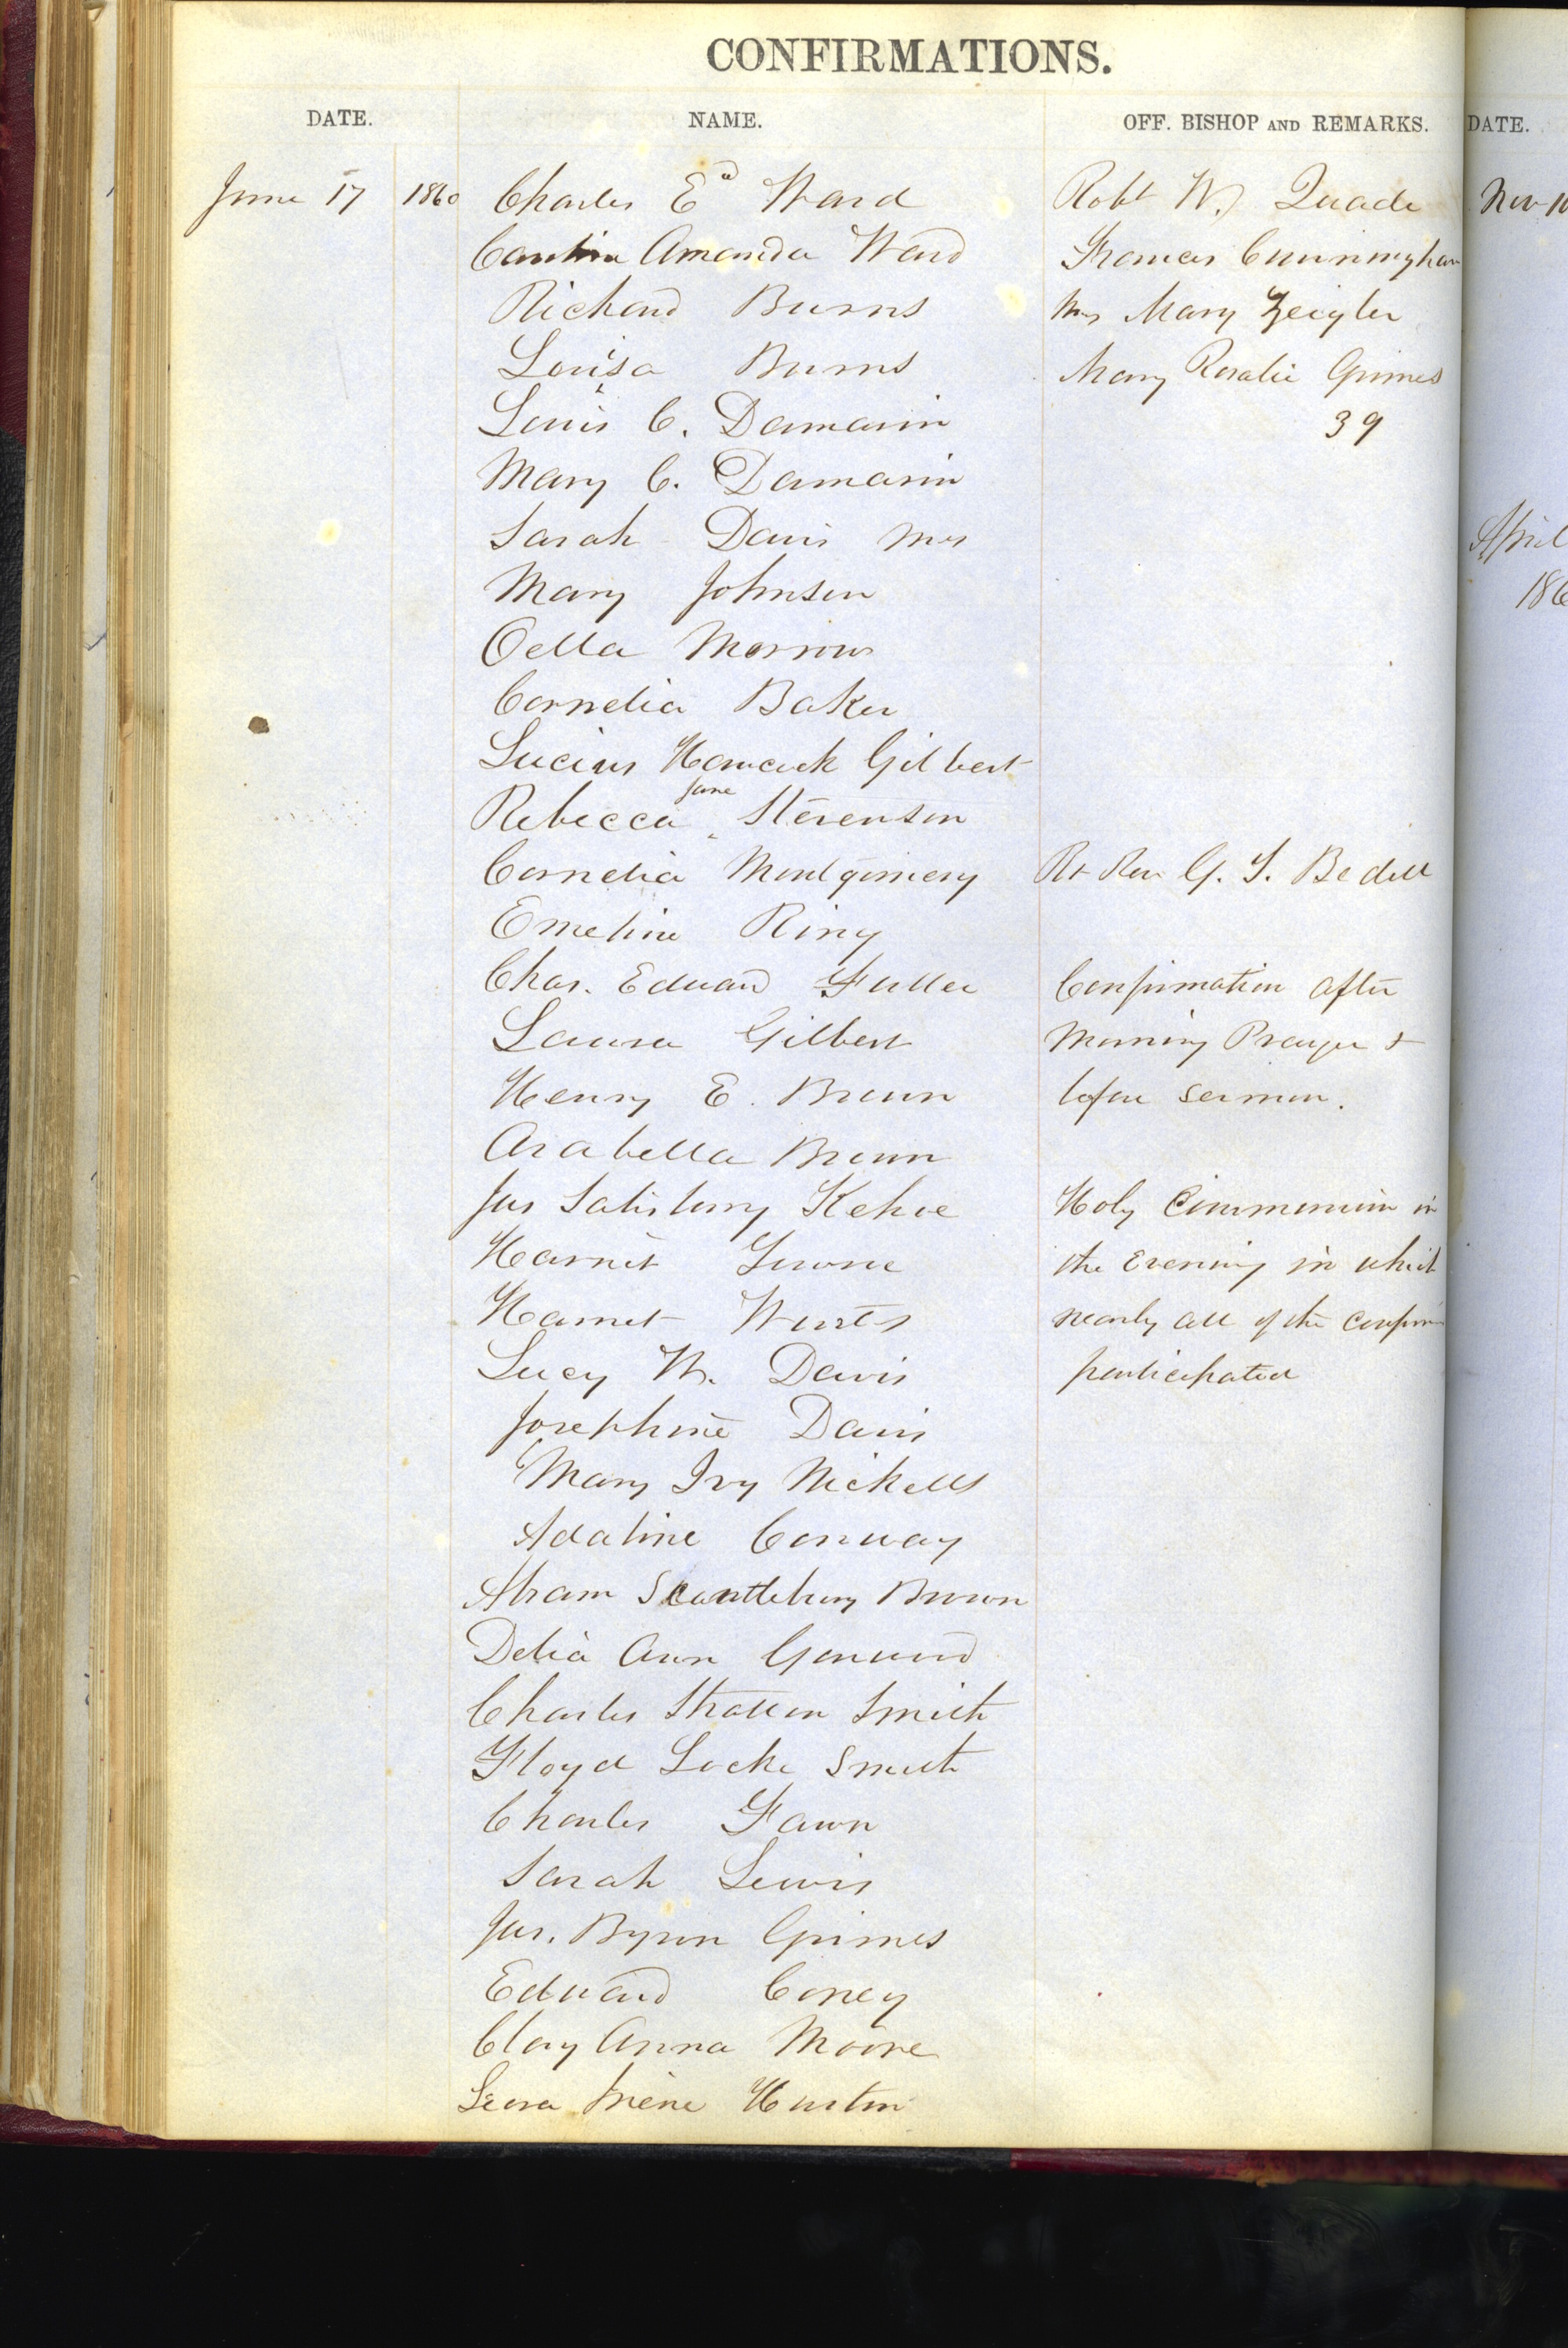 CONFIRMATIONS.
DATE. NAME. OFF. BISHOP AND REMARKS. DATE.
June 17 1860 Charles Ed Ward Robt W. Quade Nov 10
Amanda Ward Frances Cunningham
Richard Burns Mrs Mary Zeigler
Louisa Burns Mary Rosalie Grimes
Louis C. Damarin 39
Mary C. Damarin
Sarah Davis Mrs April
Mary Johnson 186
Oella Morrow
Cornelia Baker
Lucius Hancock Gilbert
Rebecca Jane Stevenson
Cornelia Montgomery Rt Rev G. T. Bedell
Emeline Ring
Chas. Edward Fuller Confirmation after
Laura Gilbert Morning Prayer +
Henry E. Brown before sermon.
Arabella Brown
Jas Salisbury Kehoe Holy Communion in
Harriet the Evening in which
Harriet Wurts nearly all of the confirm
Lucy W. Davis participated
Josephine Davis
Mary Ivy Nickells
Adaline Conway
Abram Scantlebury Brown
Delia Ann
Charles Stratton Smith
Floyd Locke Smith
Charles Fawn
Sarah Lewis
Jas. Byron Grimes
Edward Coney
Clay Anna Moore
Leora Irene Huston